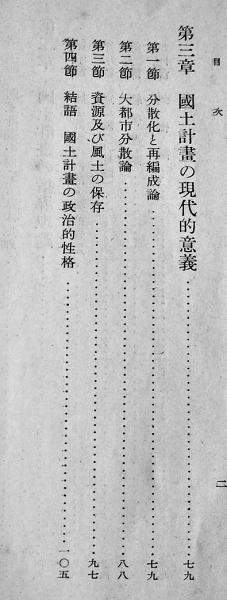 目次
第三章 國土計畫の現代的意義……七九
第一節 分散化と再編成論……七九
第二節 大都市分散論……八八
第三節 資源及び風土の保存……九七
第四節 結語 國土計畫の政治的性格……一〇五
二